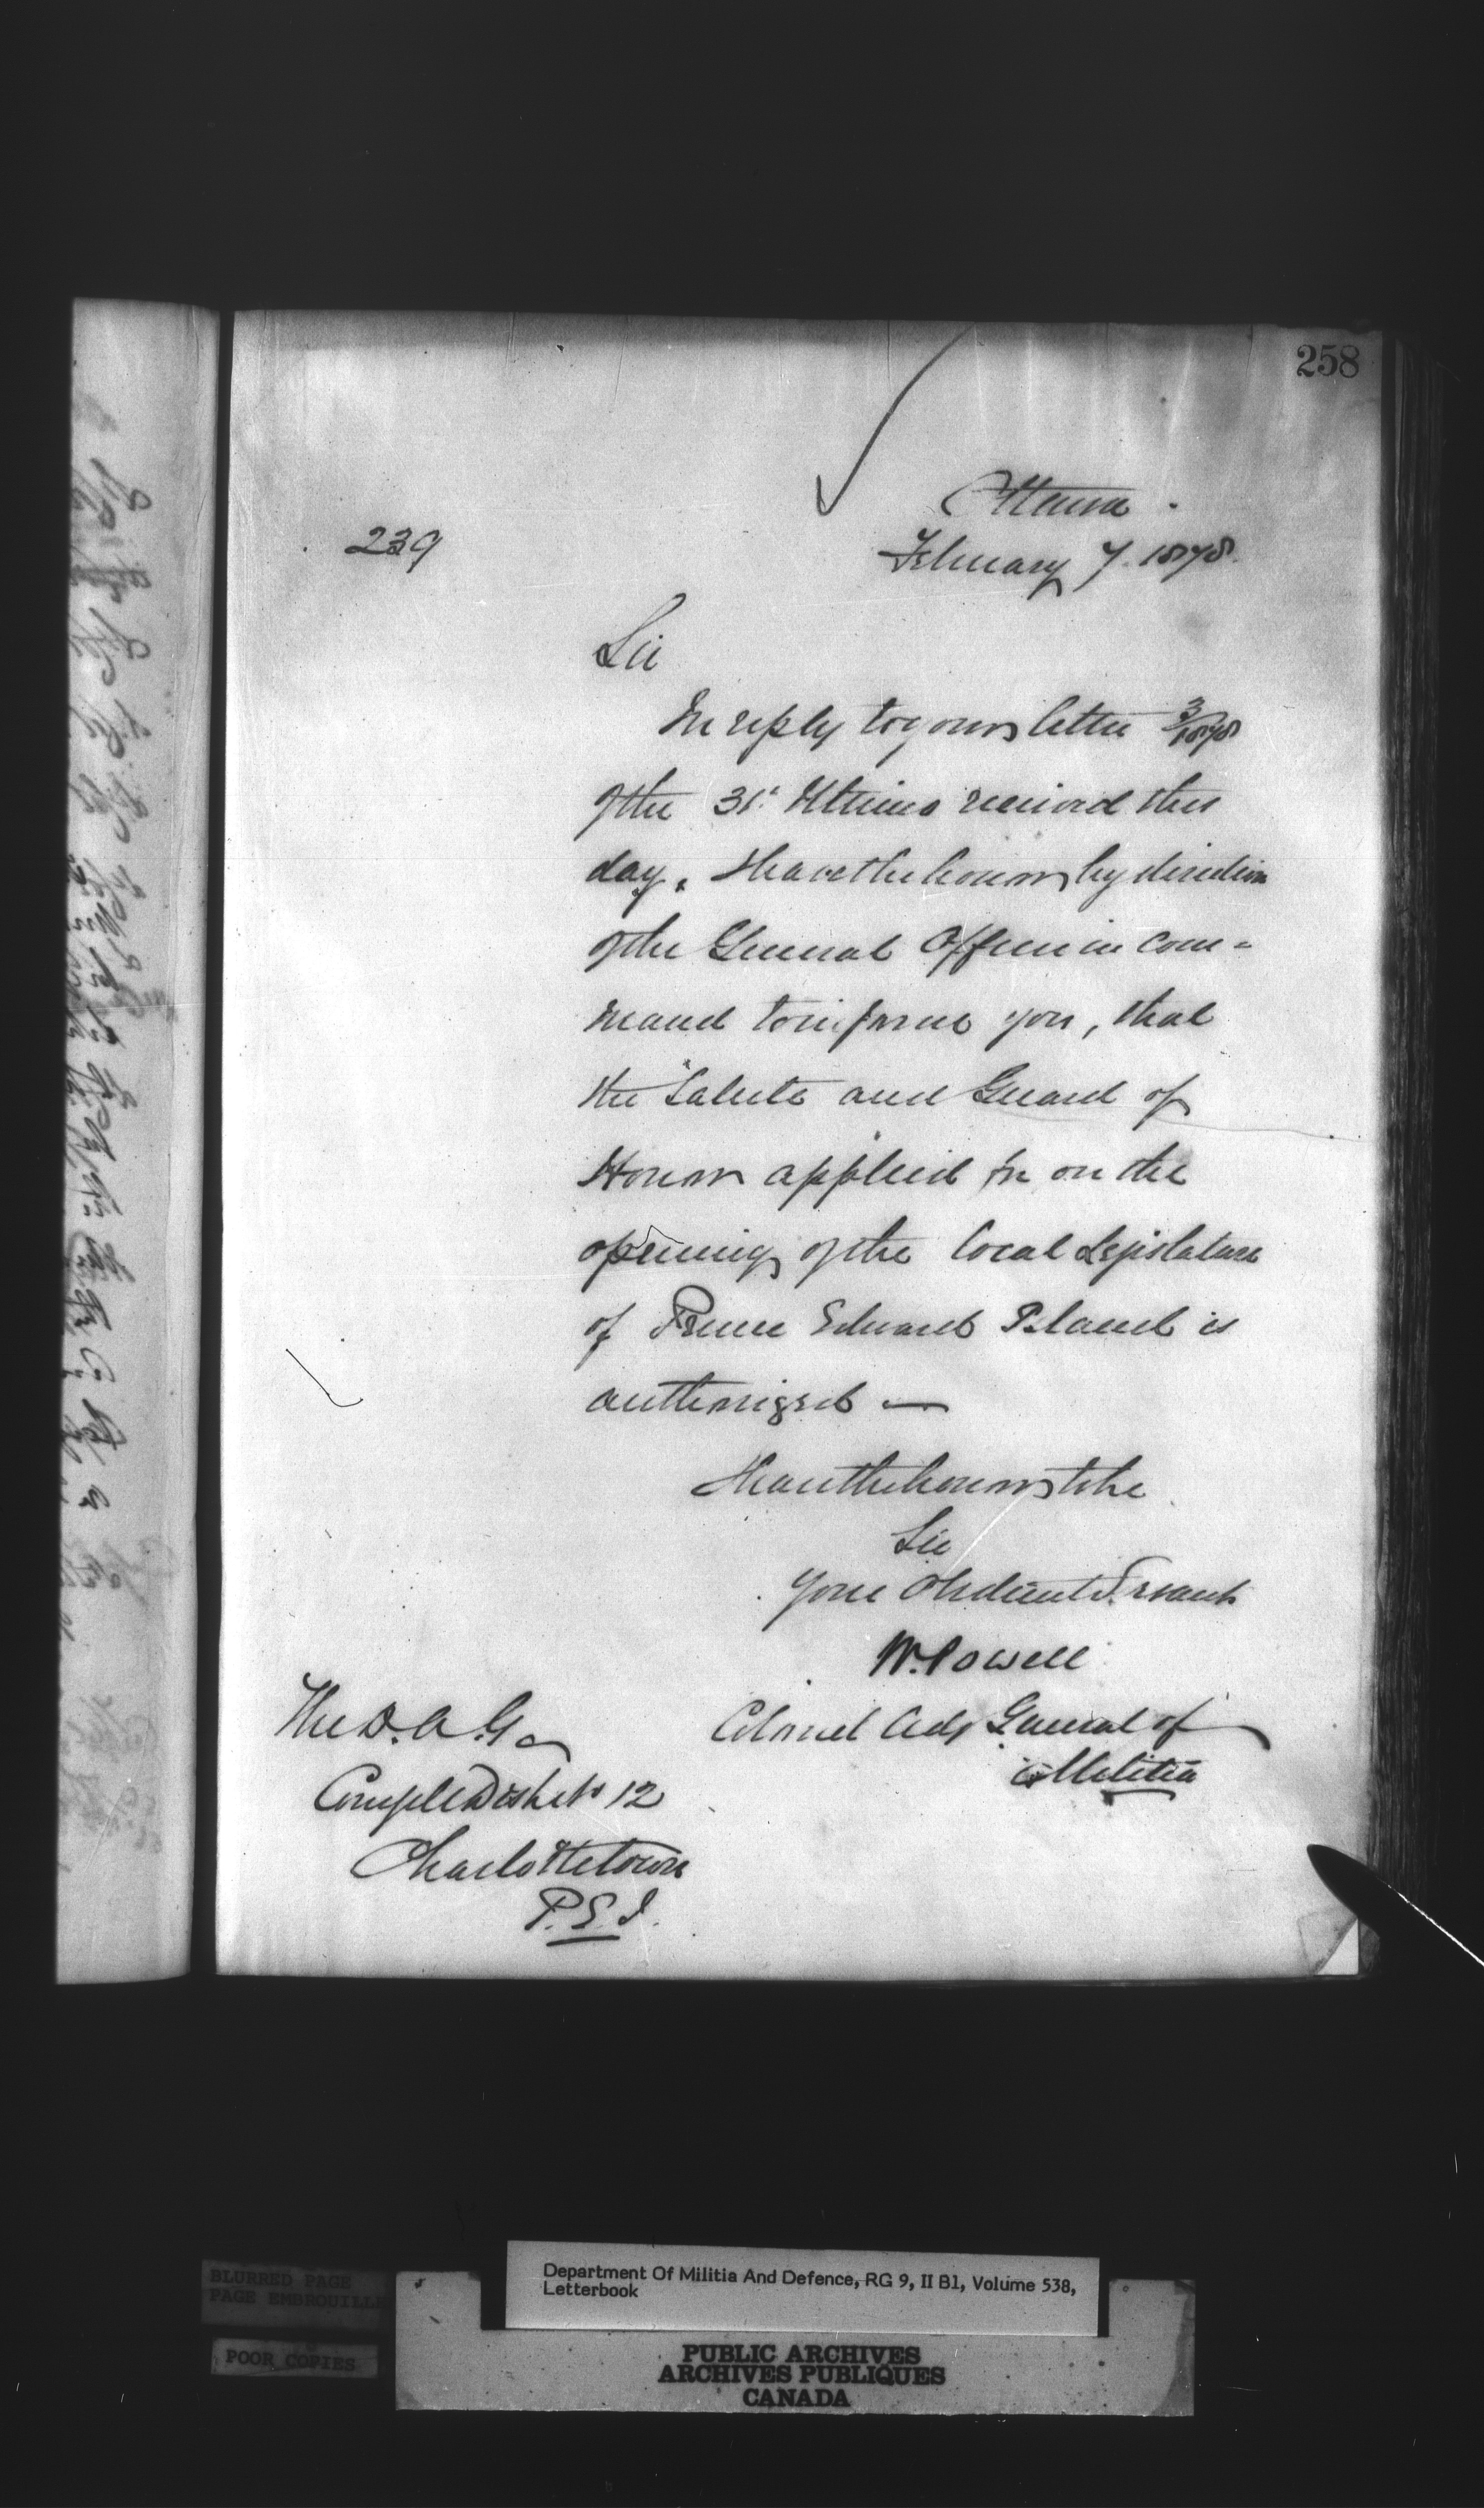 258
Ottawa.
239
February 7. 1878.
Sir
In reply to your letter 3/1878
of the 31st Ultimo received this
day, I have the honour by direction
of the General Officer in com=
mand to inform you, that
the Salute and Guard of
Honour applied for on the
opening of the local Legislature
of Prince Edward Island is
authorized —
I have the honour to be
Sir
Your Obedient Servant
W. Powell
Colonel Adj General of
Militia
The D. A. G.
Comg Mil District 12
Charlottetown
P.E.I.
BLURRED PAGE
PAGE EMBROUILLE
POOR COPIES
Department Of Militia And Defence, RG 9, II B1, Volume 538,
Letterbook
PUBLIC ARCHIVES
ARCHIVES PUBLIQUES
CANADA